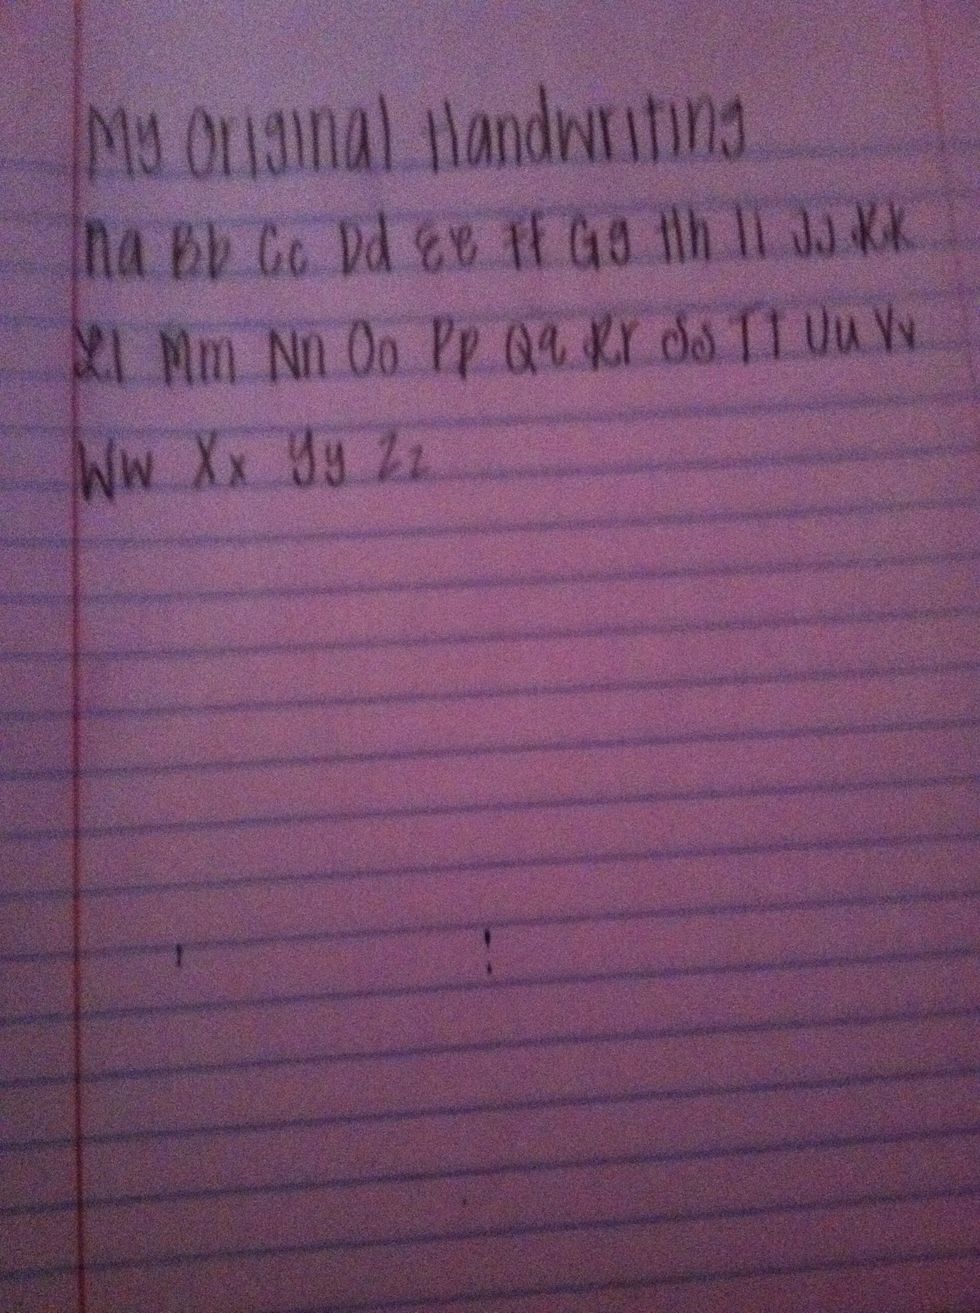 My Original Handwriting
Aa Bb Cc Dd Ee Ff Gg Hh Ii Jj Kk
Ll Mm Nn Oo Pp Qq Rr Ss Tt Uu Vv
Ww Xx Yy Zz